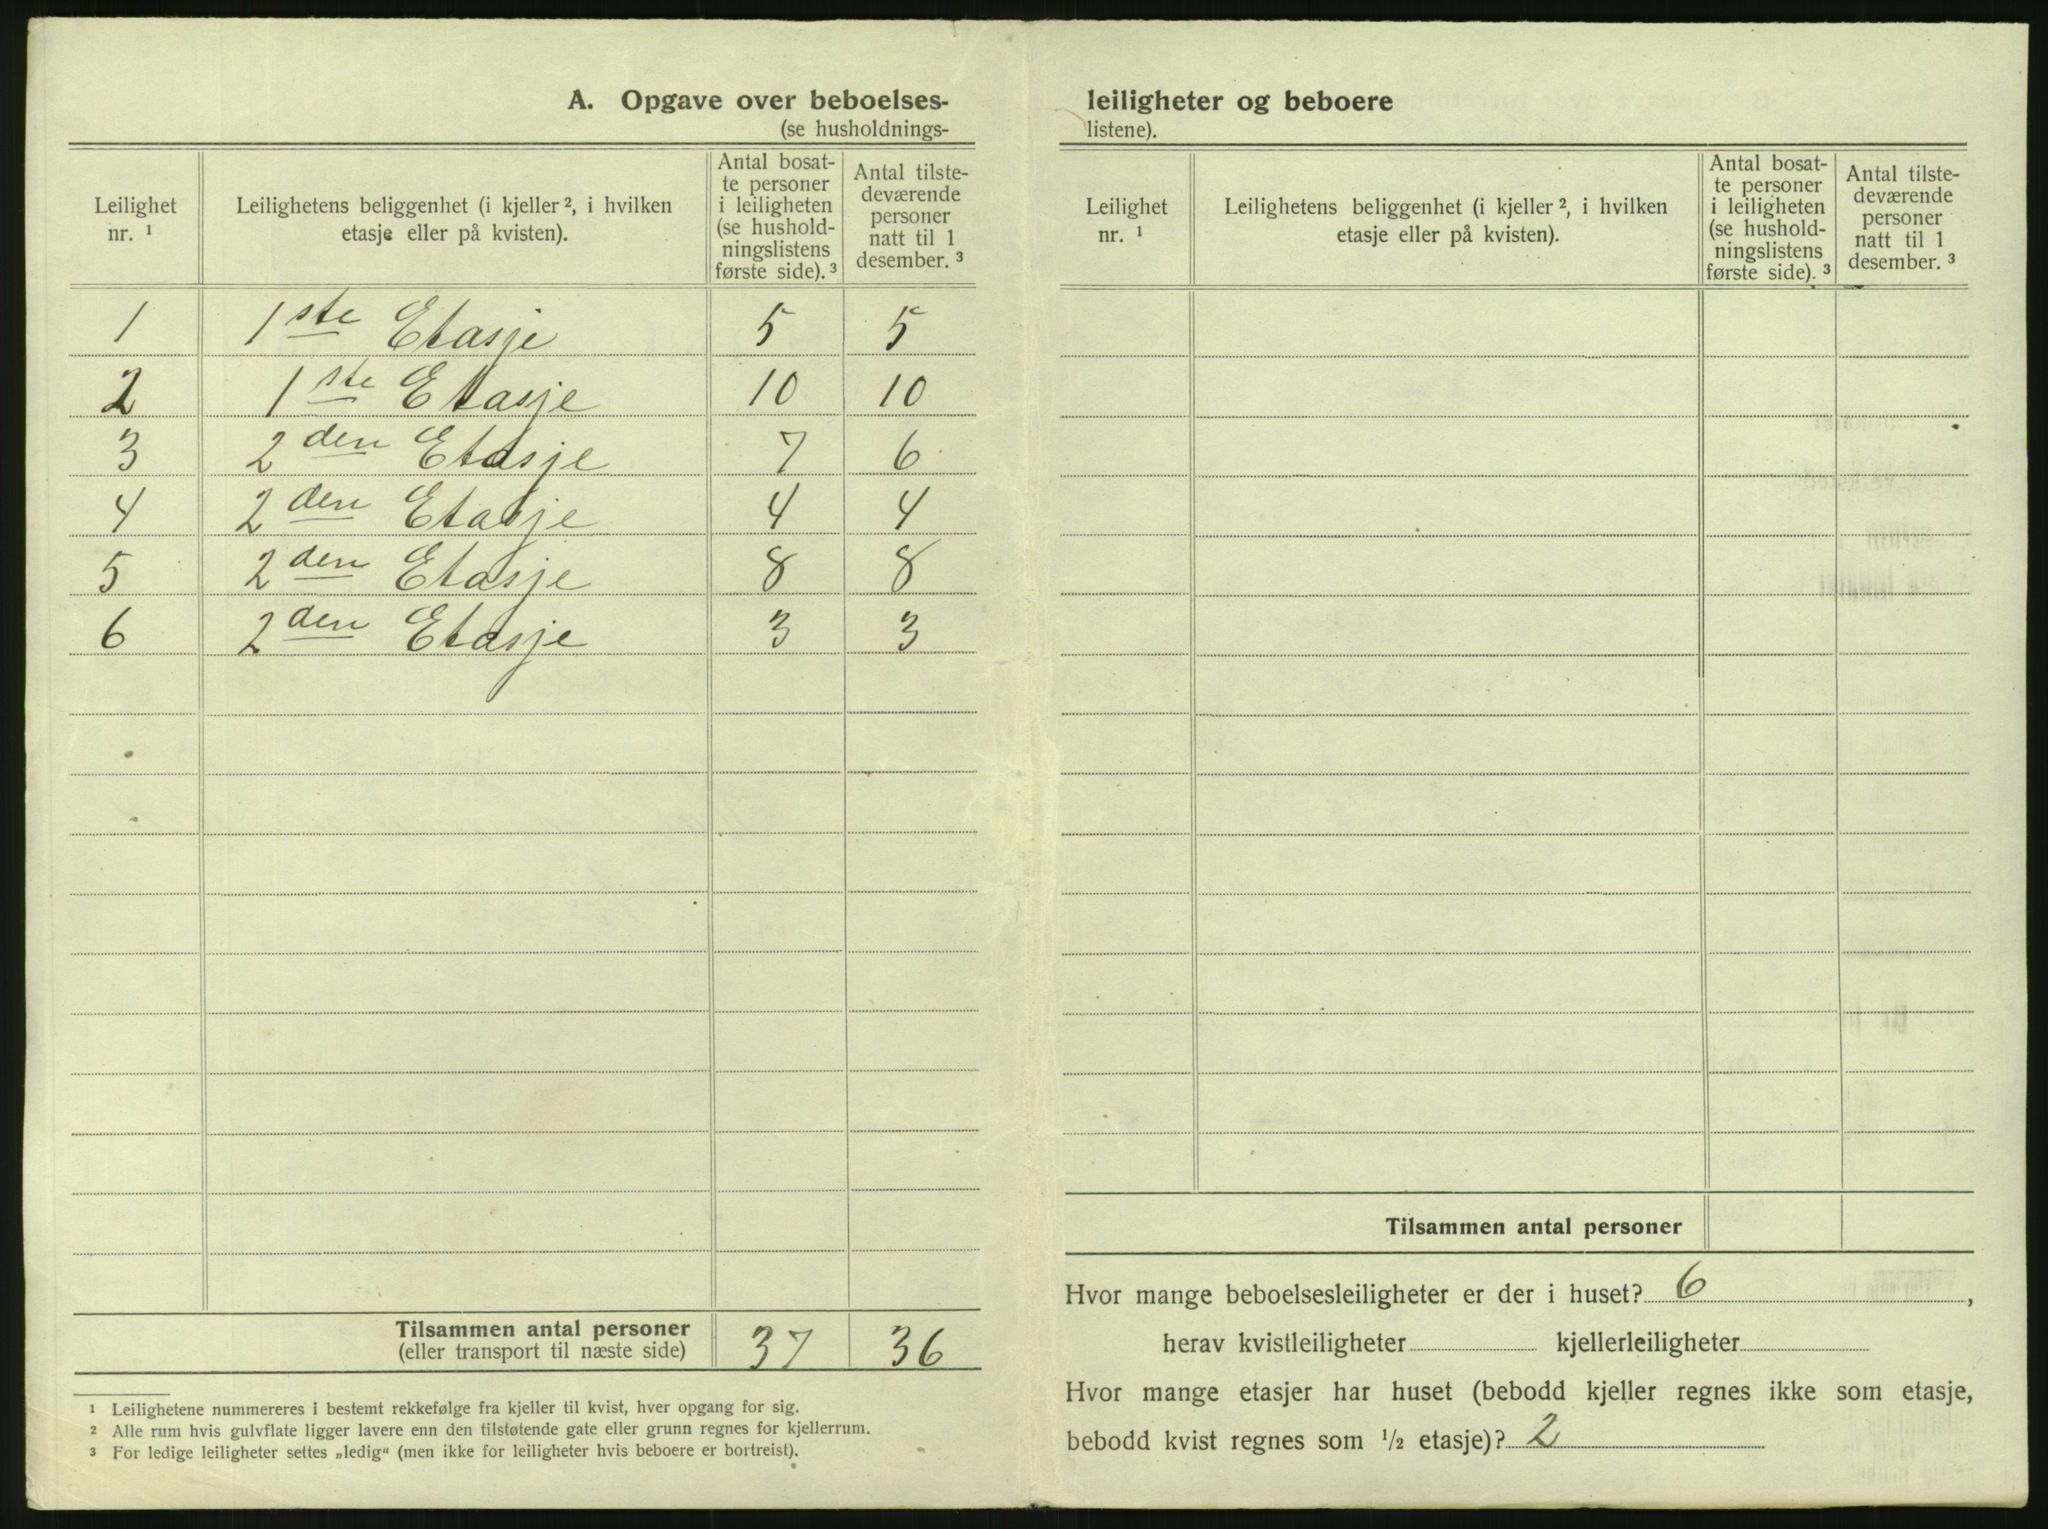 A. Opgave over beboelses-
(se husholdnings-
Leilighet nr. 1
Leilighetens beliggenhet (i kjeller 2, i hvilken etasje eller på kvisten).
Antal bosat-
te personer
i leiligheten
(se hushold-
ningslistens
første side). 3
Antal tilste-
deværende
personer
natt til 1
desember. 3
1 1ste Etasje 5 5
2 1ste Etasje 10 10
3 2den Etasje 7 6
4 2den Etasje 4 4
5 2den Etasje 8 8
6 2den Etasje 3 3
Tilsammen antal personer 37 36
(eller transport til næste side)
1 Leilighetene nummereres i bestemt rekkefølge fra kjeller til kvist, hver opgang for sig.
2 Alle rum hvis gulvflate ligger lavere enn den tilstøtende gate eller grunn regnes for kjellerrum.
3 For ledige leiligheter settes „ledig“ (men ikke for leiligheter hvis beboere er bortreist).
leiligheter og beboere
listene).
Leilighet nr. 1
Leilighetens beliggenhet (i kjeller 2, i hvilken etasje eller på kvisten).
Antal bosat-
te personer
i leiligheten
(se hushold-
ningslistens
første side). 3
Antal tilste-
deværende
personer
natt til 1
desember. 3
Tilsammen antal personer
Hvor mange beboelsesleiligheter er der i huset? 6 ,
herav kvistleiligheter kjellerleiligheter
Hvor mange etasjer har huset (bebodd kjeller regnes ikke som etasje,
bebodd kvist regnes som 1/2 etasje)? 2